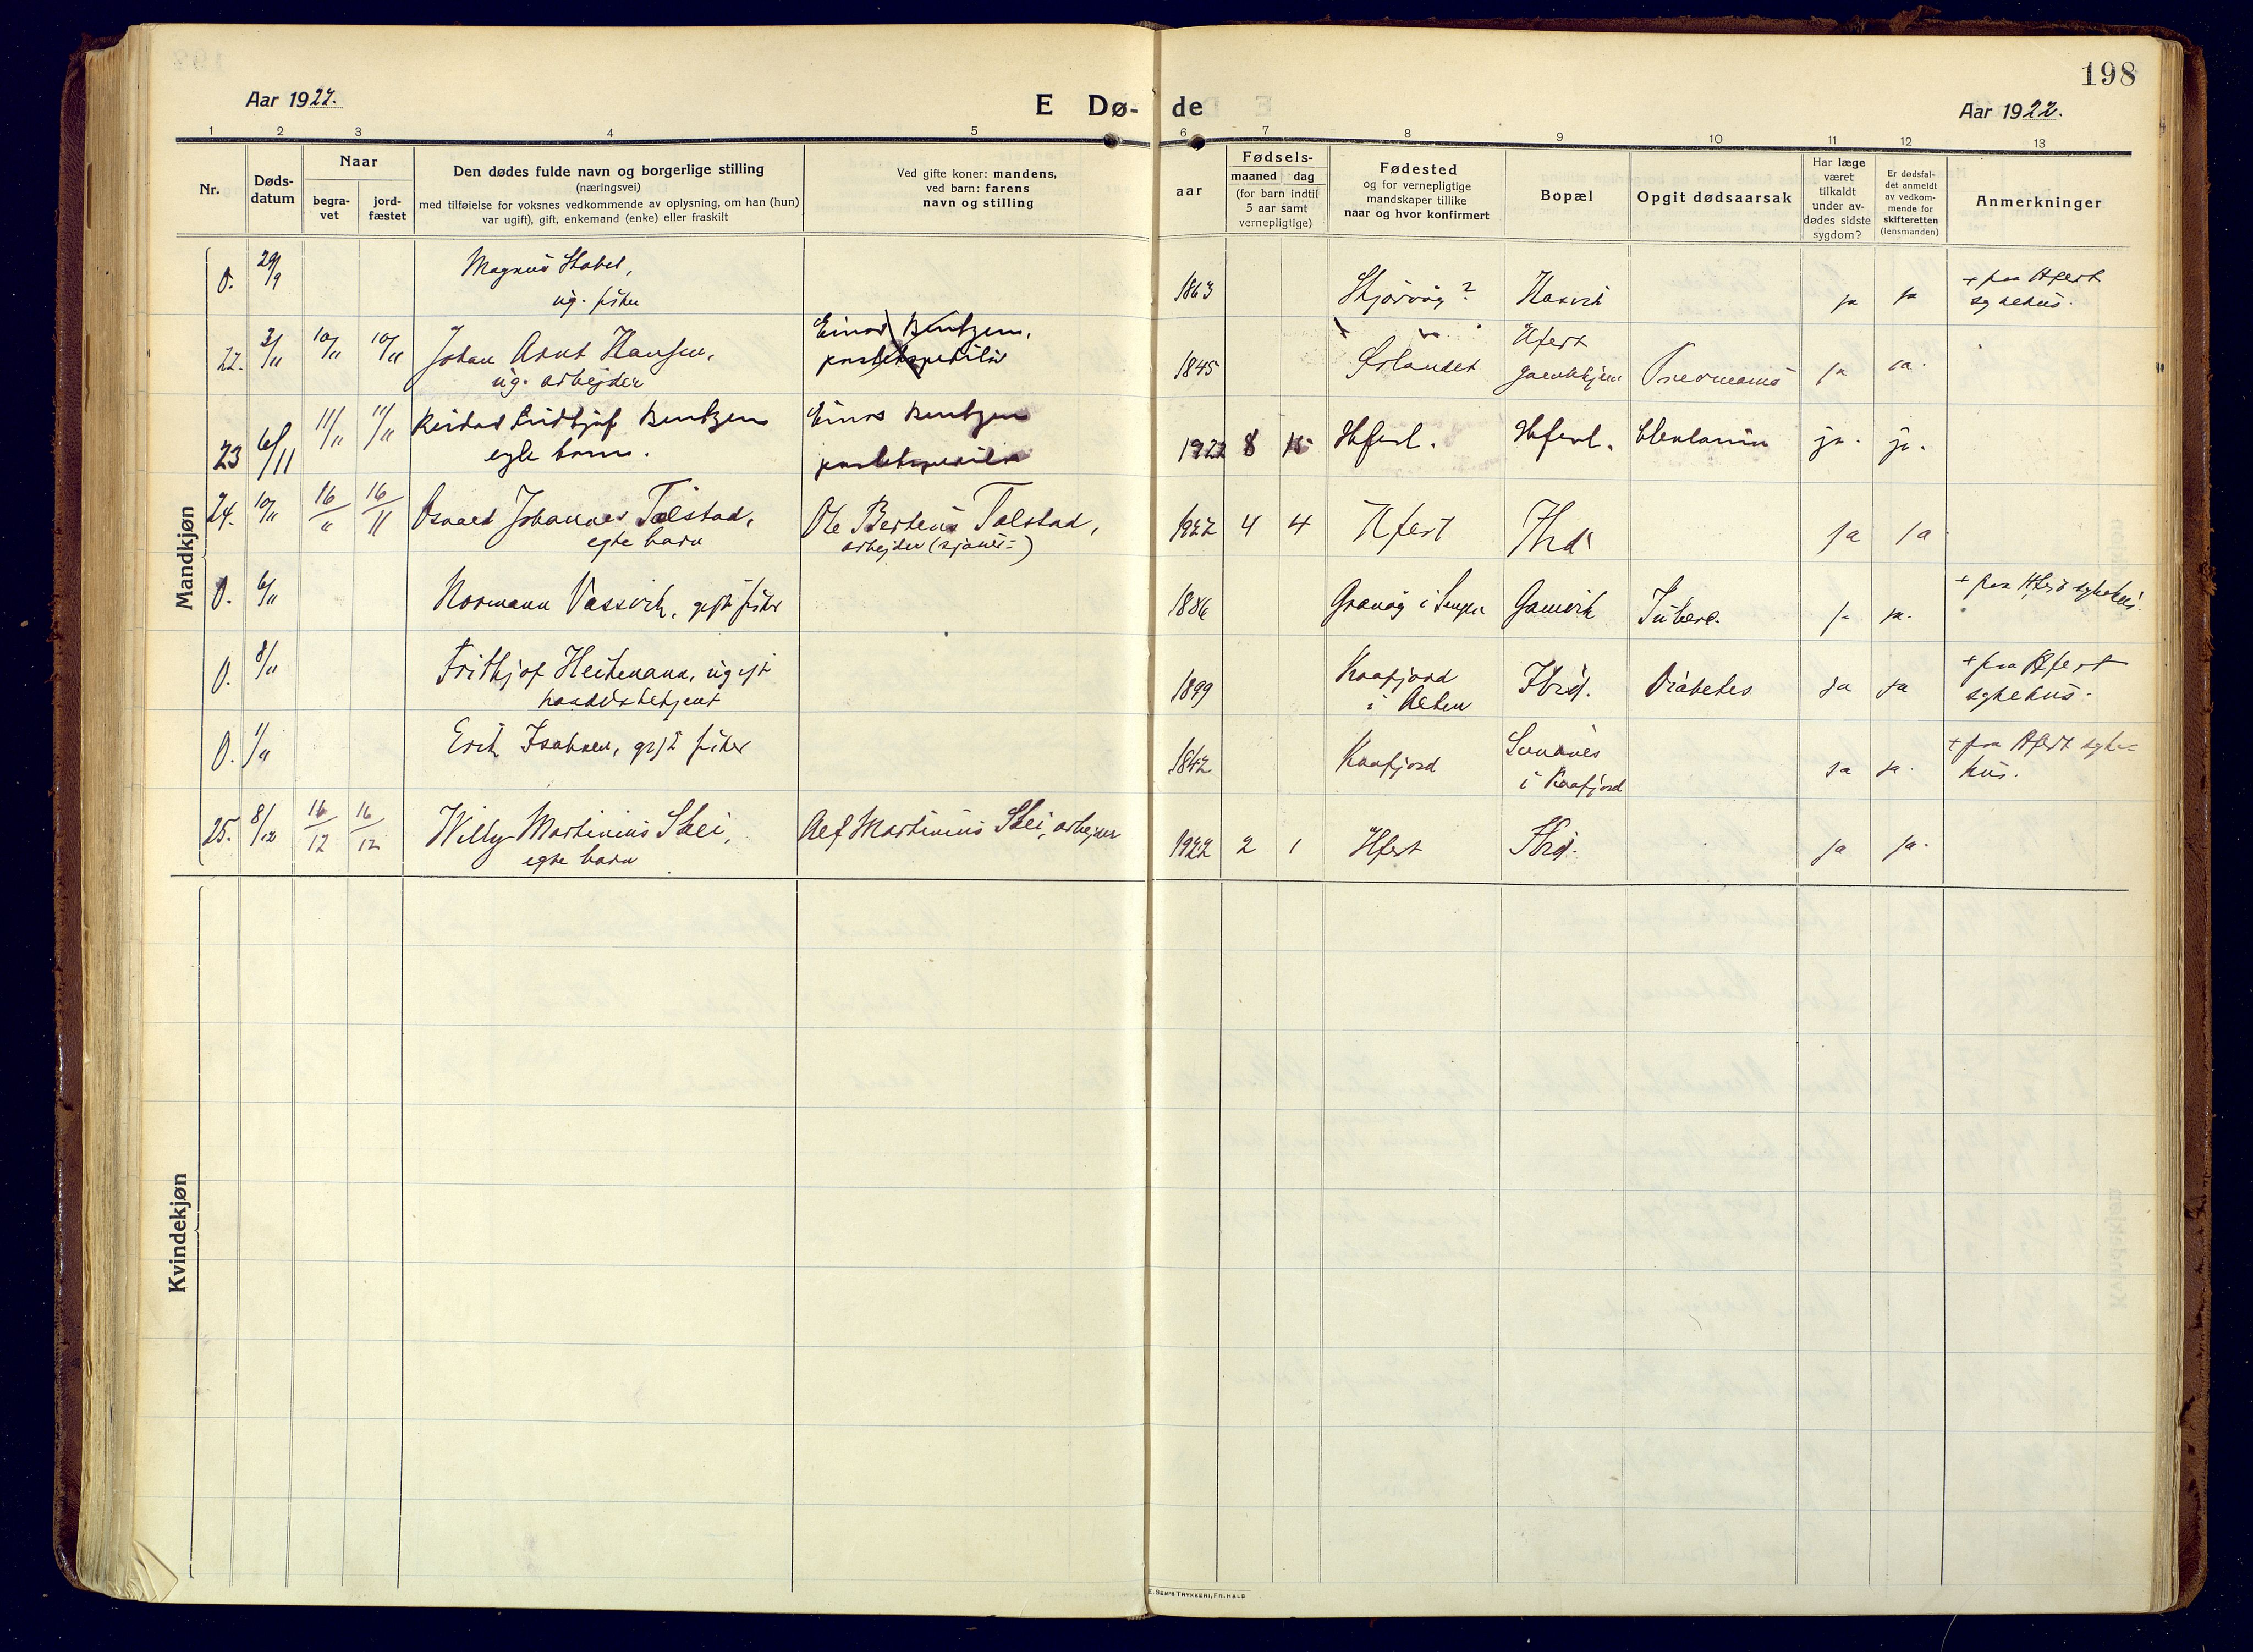 198
Aar 1922.
E Dø- de
Aar 1922.
1 2 3 4 5 6 7 8 9 10 11 12 13
Nr.
Døds-
datum
Naar
begra-
vet
jord-
fæstet
Den dødes fulde navn og borgerlige stilling
(næringsvei)
med tilføielse for voksnes vedkommende av oplysning, om han (hun)
var ugift), gift, enkemand (enke) eller fraskilt
Ved gifte koner: mandens,
ved barn: farens
navn og stilling
aar
Fødsels-
maaned dag
(for barn indtil
5 aar samt
vernepliglige)
Fødested
og for vernepligtige
mandskaper tillike
naar og hvor konfirmert
Bopæl
Opgit dødsaarsak
Har læge
været
tilkaldt
under av-
dødes sidste
sygdom?
Er dødsfal-
det anmeldt
av vedkom-
mende for
skifteretten
(lensmanden)
Anmerkninger
Mandkjøn
0. 29/9 Magnus Stabel, 1863 Skjørvøy? Hasvik ja ja + paa Hfest
ug. fisker sygehus.
22. 3/11 10/11 10/11 Johan Arnt Hansen, Einar Bentzen, 1845 Ørlandet Hfest Pneumonia ja ja.
ug. arbejder postekspeditør
23 6/11 11/11 11/11 Reidar Fridtjof Bentzen Einar Bentzen 1922 8 15 Hfest. Hfest. ja. ja.
egte barn. postekspeditør
24. 10/11 16/11 16/11 Osvald Johannes Tolstad, Ole Bertens Tolstad, 1922 4 4 Hfest Ibid ja ja
egte barn arbejder (sjaues-)
0. 6/11 Normann Vassvik, gift fisker 1886 Gravøy i Senjen Gamvik Tuberc. ja ja. + paa Hfest sykehus.
0. 8/11 Frithjof Heitmann, ugift 1899 Kaafjord Ibid. Diabetes ja ja + paa Hfest
handelsbetjent i Alten sygehus.
0. 1/11 Erik Isaksen, gift fisker 1842 Kaafjord ja ja. + paa Hfest syge-
i Kaafjord hus.
25. 8/12 16/12 16/12 Willy Martinius Skei, Alf Martinius Skei, arbejder 1922 2 1 Hfest Ibid. ja ja.
egte barn
Kvindekjøn
E. SEM'S TRYKKERI, FR.HALD